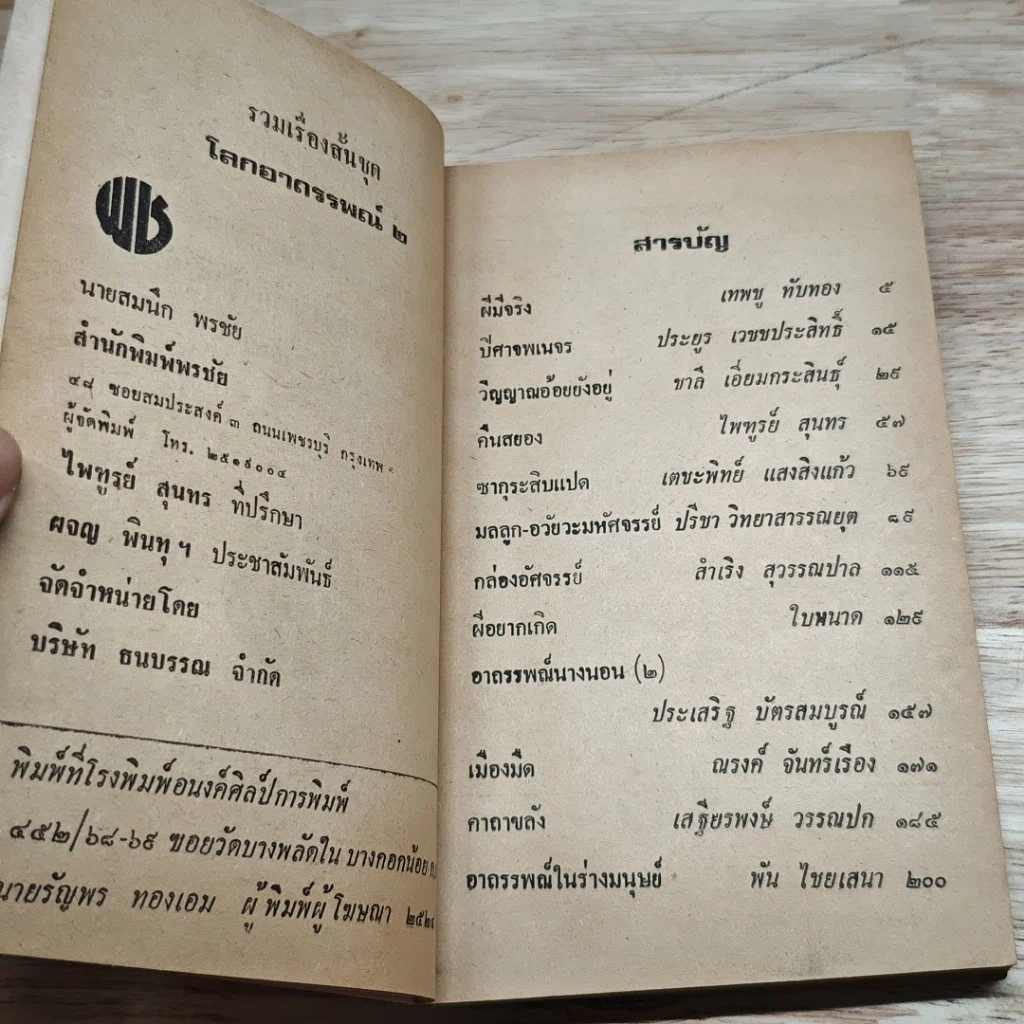 รวมเรื่องสั้นชุด
โลกอาถรรพณ์ ๒
พช
นายสมนึก พรชัย
สำนักพิมพ์พรชัย
๔๘ ซอยสมประสงค์ ๓ ถนนเพชรบุรี กรุงเทพ ฯ
ผู้จัดพิมพ์ โทร. ๒๕๑๙๐๐๔
ไพฑูรย์ สุนทร ที่ปรึกษา
ผจญ พินทุ ฯ ประชาสัมพันธ์
จัดจำหน่ายโดย
บริษัท ธนบรรณ จำกัด
พิมพ์ที่โรงพิมพ์อนงค์ศิลป์การพิมพ์
๔๕๒/๖๘-๖๙ ซอยวัดบางพลัดใน บางกอกน้อย
นายรัญพร ทองเอม ผู้พิมพ์ผู้โฆษณา
สารบัญ
ผีมีจริง เทพชู ทับทอง ๕
ปีศาจพเนจร ประยูร เวชชประสิทธิ์ ๑๕
วิญญาณอ้อยยังอยู่ ชาลี เอี่ยมกระสินธุ์ ๒๙
คืนสยอง ไพฑูรย์ สุนทร ๕๗
ซากุระสิบแปด เตชะพิทย์ แสงสิงแก้ว ๖๙
มลลูก-อวัยวะมหัศจรรย์ ปรีชา วิทยาสารรณยุต ๘๙
กล่องอัศจรรย์ สำเริง สุวรรณปาล ๑๑๕
ผีอยากเกิด ใบหนาด ๑๒๙
อาถรรพณ์นางนอน (๒)
ประเสริฐ บัตรสมบูรณ์ ๑๕๗
เมืองมืด ณรงค์ จันทร์เรือง ๑๗๑
คาถาขลัง เสฐียรพงษ์ วรรณปก ๑๘๕
อาถรรพณ์ในร่างมนุษย์ พัน ไชยเสนา ๒๐๐